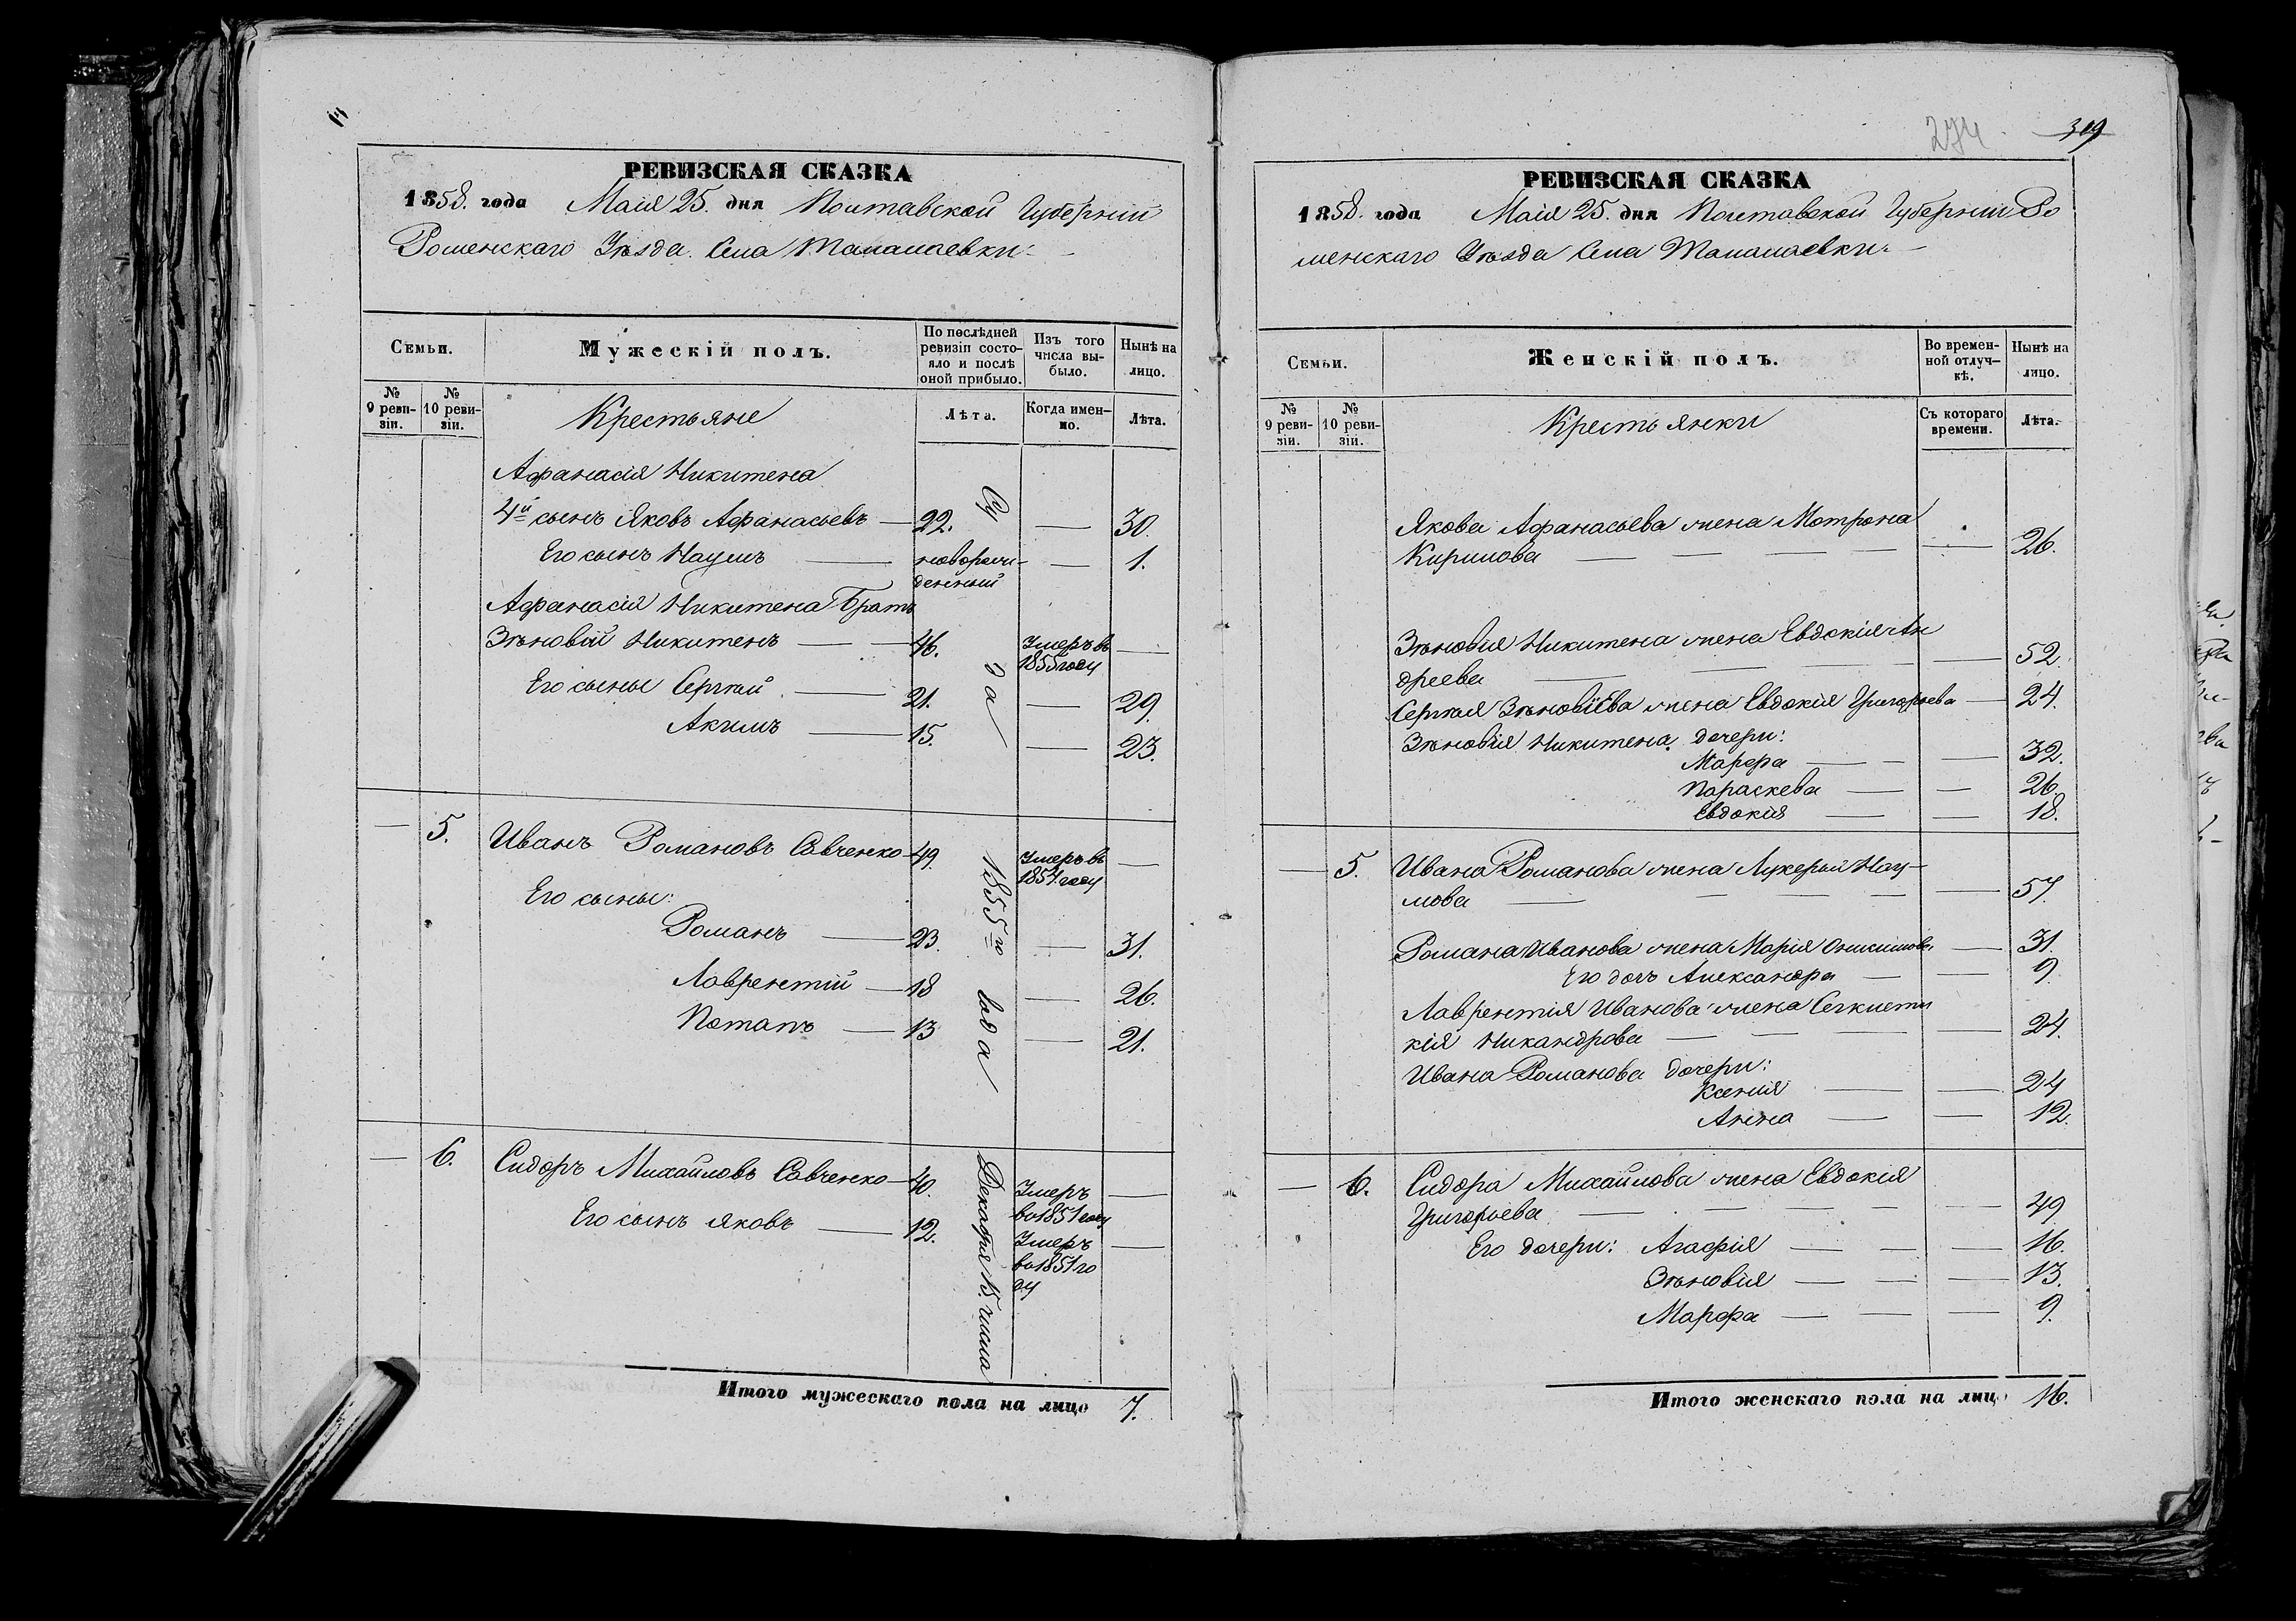 РЕВИЗСКАЯ СКАЗКА
1858. года Маія 25. дня Полтавской Губерніи
Роменскаго Уѣзда. Села Талалаевки
Семьи.
Мужескій полъ.
По послѣдней ревизіи состояло и послѣ оной прибыло.
Изъ того числа выбыло.
Нынѣ на лицо.
№ 9 ревизіи.
№ 10 ревизіи.
Крестьяне
Лѣта.
Когда именно.
Лѣта.
Афанасія Никитена
4й сынъ Яковъ Афанасьевъ — 22. — 30.
Его сынъ Наумъ — новорожденный — 1.
Афанасія Никитена Братъ
Зѣновій Никитенъ — 46. Умеръ въ 1855 году —
Его сыны Сергѣй — 21. — 29.
Акимъ — 15. — 23.
— 5. Иванъ Романовъ Савченко 49. Умеръ въ 1857 году —
Его сыны:
Романъ — 23. — 31.
Лаврентій — 18 — 26.
Потапъ — 13 — 21.
— 6. Сидоръ Михайловъ Савченко 40. Умеръ во 1851 году —
Его сынъ Яковъ — 12. Умеръ во 1851 году —
Декабря 15. числа
1855го года
Итого мужескаго пола на лицо 7.
274
319
РЕВИЗСКАЯ СКАЗКА
1858. года Маія 25. дня Полтавской Губерніи Ро
менскаго Уѣзда Села Талалаевки
Семьи.
Женскій полъ.
Во временной отлучкѣ.
Нынѣ на лицо.
№ 9 ревизіи.
№ 10 ревизіи.
Крестьянки
Съ котораго времени.
Лѣта.
Якова Афанасьева жена Мотрона
Кирилова — — 26.
Зѣновія Никитена жена Евдокія Ан
дреева — — 52.
Сергѣя Зѣновіева жена Евдокія Григорьева — 24.
Зѣновія Никитена дочери:
Марфа — — 32.
Параскева — — 26.
Евдокія — — 18.
— 5. Ивана Романова жена Лукерья Нау-
мова — — 57.
Романа Иванова жена Марія Онисимова — 31.
Его дочь Александра — — 9.
Лаврентія Иванова жена
кія Никандрова — — 24.
Ивана Романова дочери:
Ксенія — — 24
Анна — — 12.
— 6. Сидора Михайлова жена Евдокія
Григорьева — — 49
Его дочери: Агафія — — 16.
Зѣновія — — 13.
Марфа — — 9.
Итого женскаго пола на лицо 16.